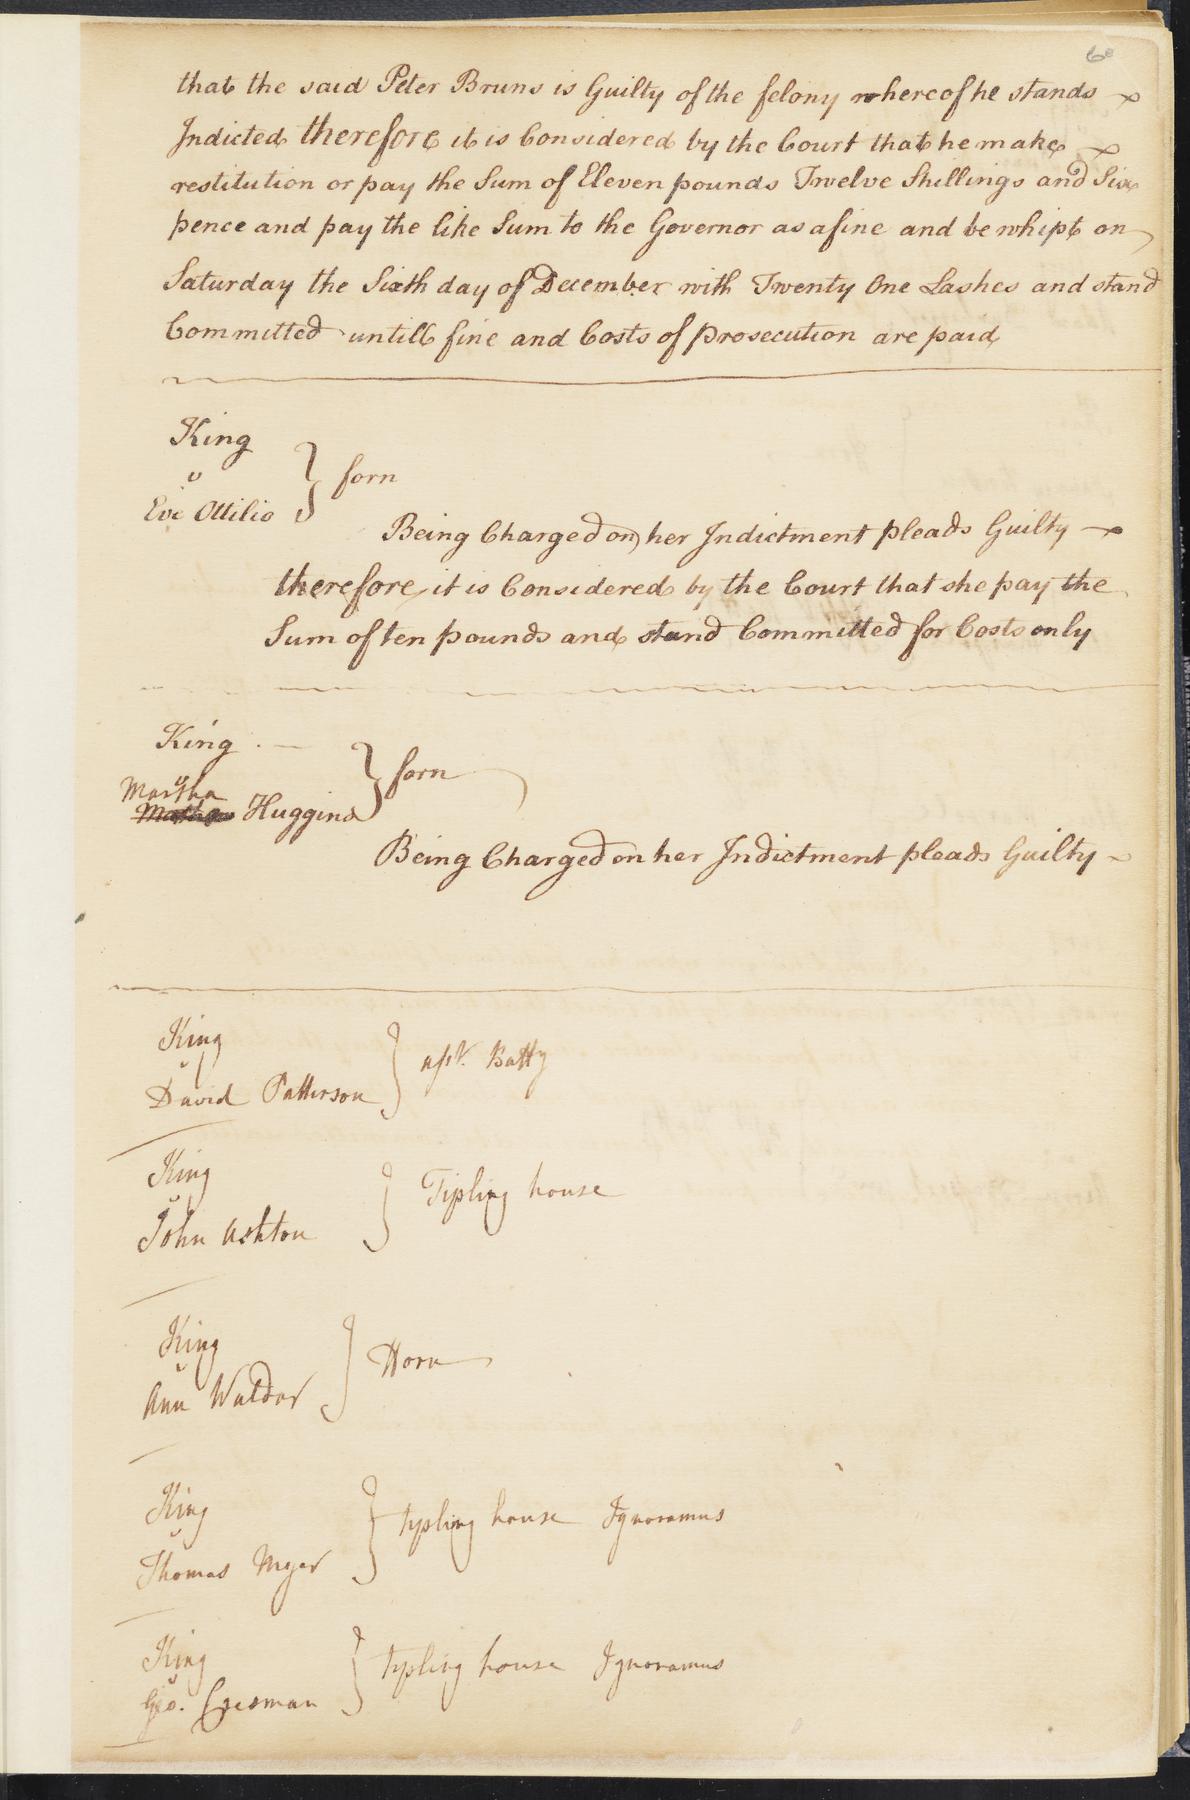 60
that the said Peter Bruns is Guilty of the felony whereof he stands
Indicted therefore it is Considered by the Court that he make
restitution or pay the Sum of Eleven pounds Twelve Shillings and Six
pence and pay the like Sum to the Governor as a fine and be whipt on
Saturday the Sixth day of December with Twenty One Lashes and stand
Committed untill fine and Costs of prosecution are paid
King
v
Eve Ottilio
} forn
Being Charged on her Indictment pleads Guilty
therefore it is Considered by the Court that she pay the
Sum of ten pounds and stand Committed for Costs only
King
v
Martha
Huggins
} forn
Being Charged on her Indictment pleads Guilty
King
v
David Patterson
} asst. Batty
King
v
John Ashton
} Tipling house
King
v
Ann Waldor
}
King
v
Thomas Myer
} typling house Ignoramus
King
v
Geo.
} typling house Ignoramus